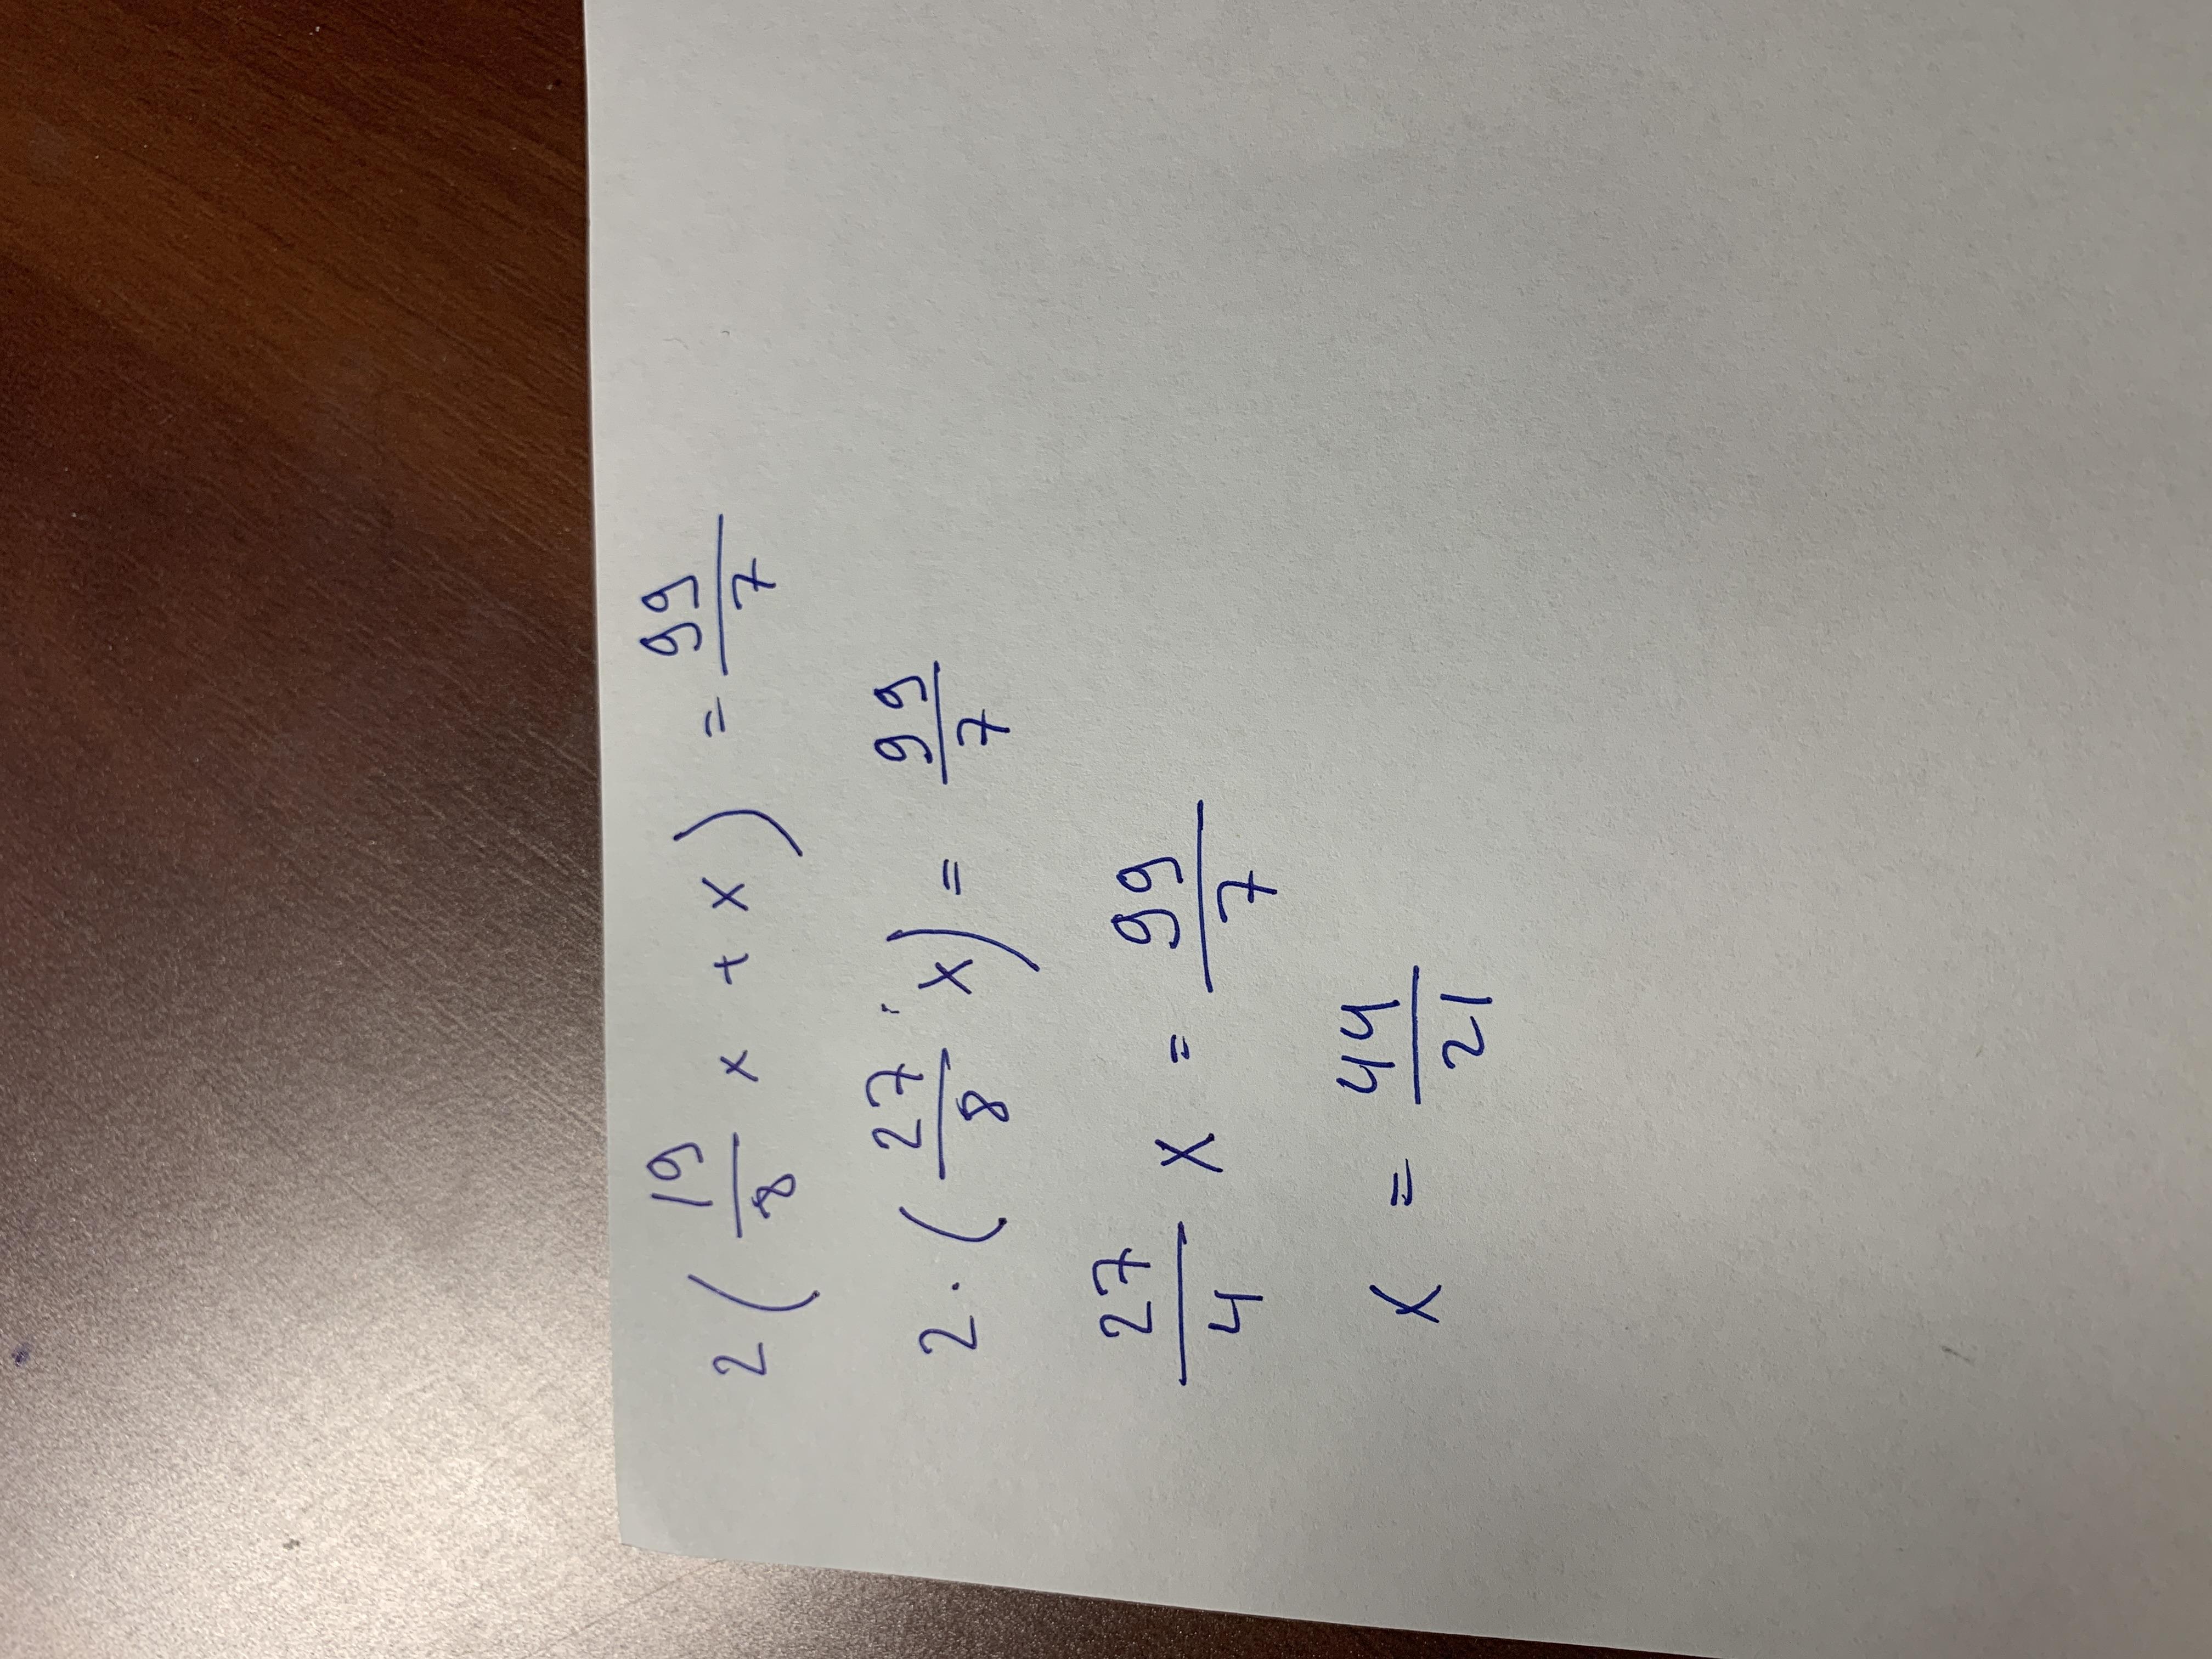 2 ( 19/8 x + x ) = 99/7
2 · ( 27/8 · x ) = 99/7
27/4 x = 99/7
x = 44/21